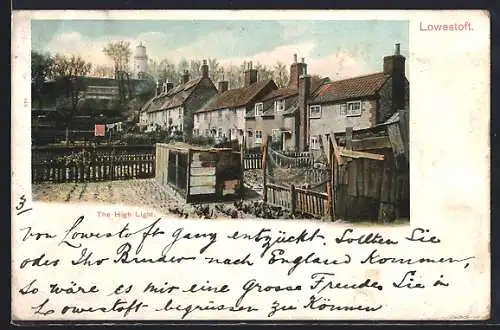 Lowestoft.
The High Light.
Von Lowestoft Ganz entzückt. Sollten Sie
oder Ihr Bruder nach England Kommen,
So wäre es mir eine grosse Freude Sie in
Lowestoft begrüssen zu Können